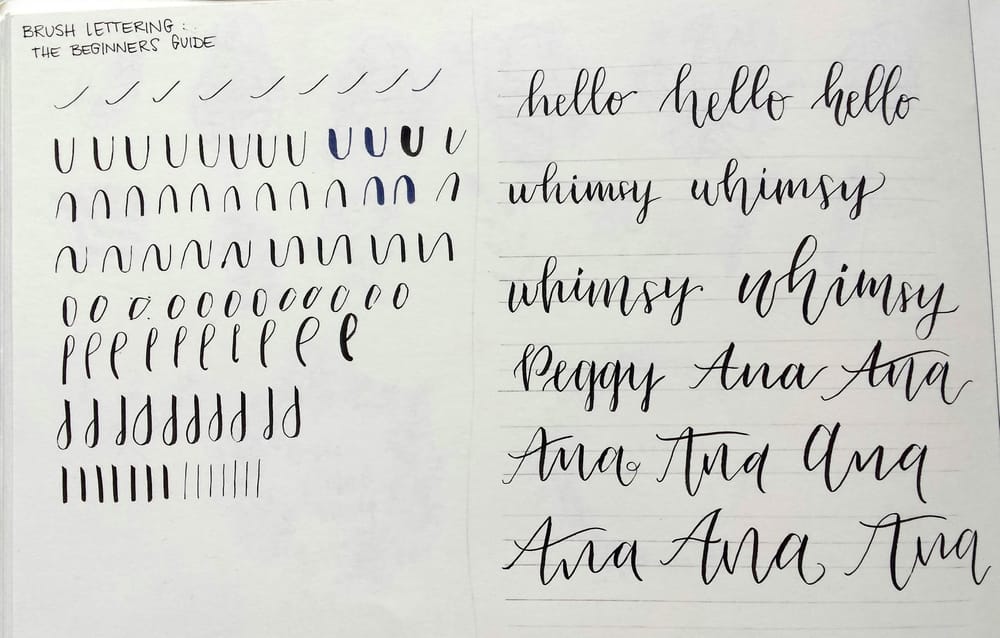 BRUSH LETTERING :
THE BEGINNERS' GUIDE
hello hello hello
whimsy whimsy
whimsy whimsy
Peggy Ana Ana
Ana Ana Ana
Ana Ana Ana